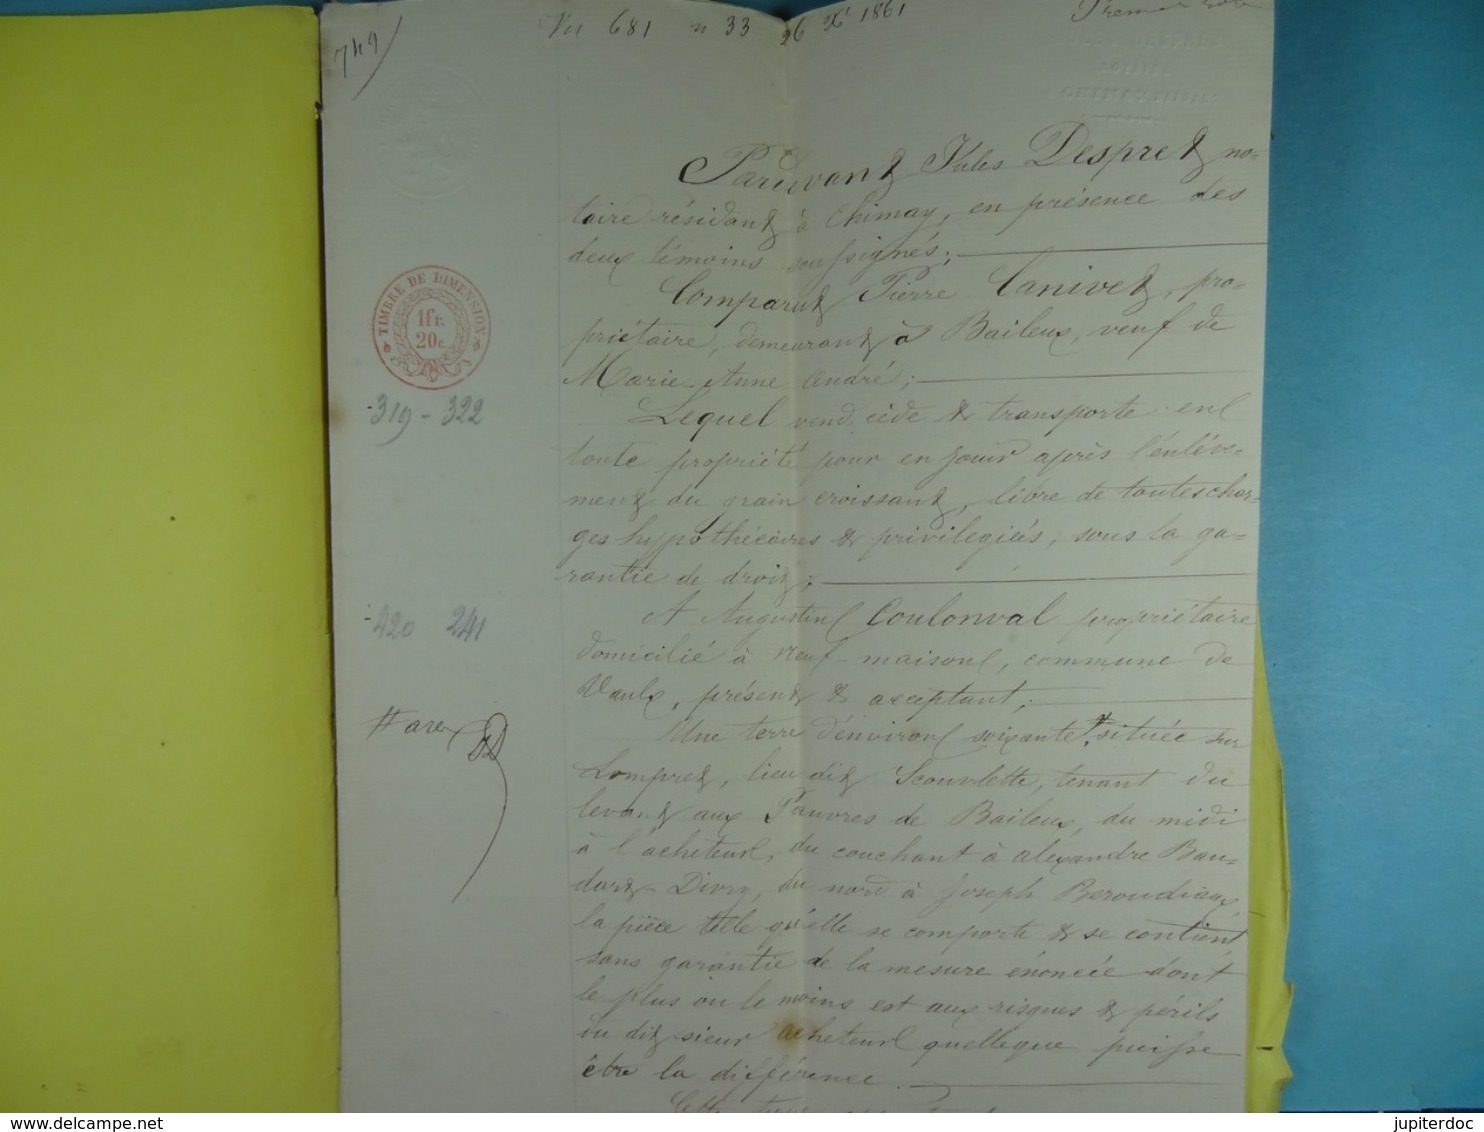 749
681 n 33 26 Xb 1861
Premier rôle
Pardevant Jules Despret no-
taire résidant à Chimay, en présence des
deux témoins soussignés;
Comparut Pierre Canivet, pro-
priétaire, demeurant à Baileux, veuf de
Marie-Anne André;
TIMBRE DE DIMENSION
1fr.
20c.
319 - 322
Lequel vend cède & transporte en
toute propriété pour en jouir après l'enlève-
ment du grain croissant, libre de toutes char-
ges hypothécaires & privilegiés, sous la ga-
rantie de droit;
420 241
A Augustin Coulonval propriétaire
domicilié à neuf-maison, commune de
Vaulx, présent & acceptant;
# ares
Une terre d'environ soixante # située sur
Lompret, lieu dit Scouvlette, tenant du
levant aux Pauvres de Baileux, du midi
à l'acheteur, du couchant à alexandre Bau-
dart Divry, du nord à Joseph Beroudiaux,
la pièce telle qu'elle se comporte & se contient
sans garantie de la mesure énoncée dont
le plus ou le moins est aux risques & périls
du dit sieur acheteur quelleque puisse
être la différence.
Cette terre